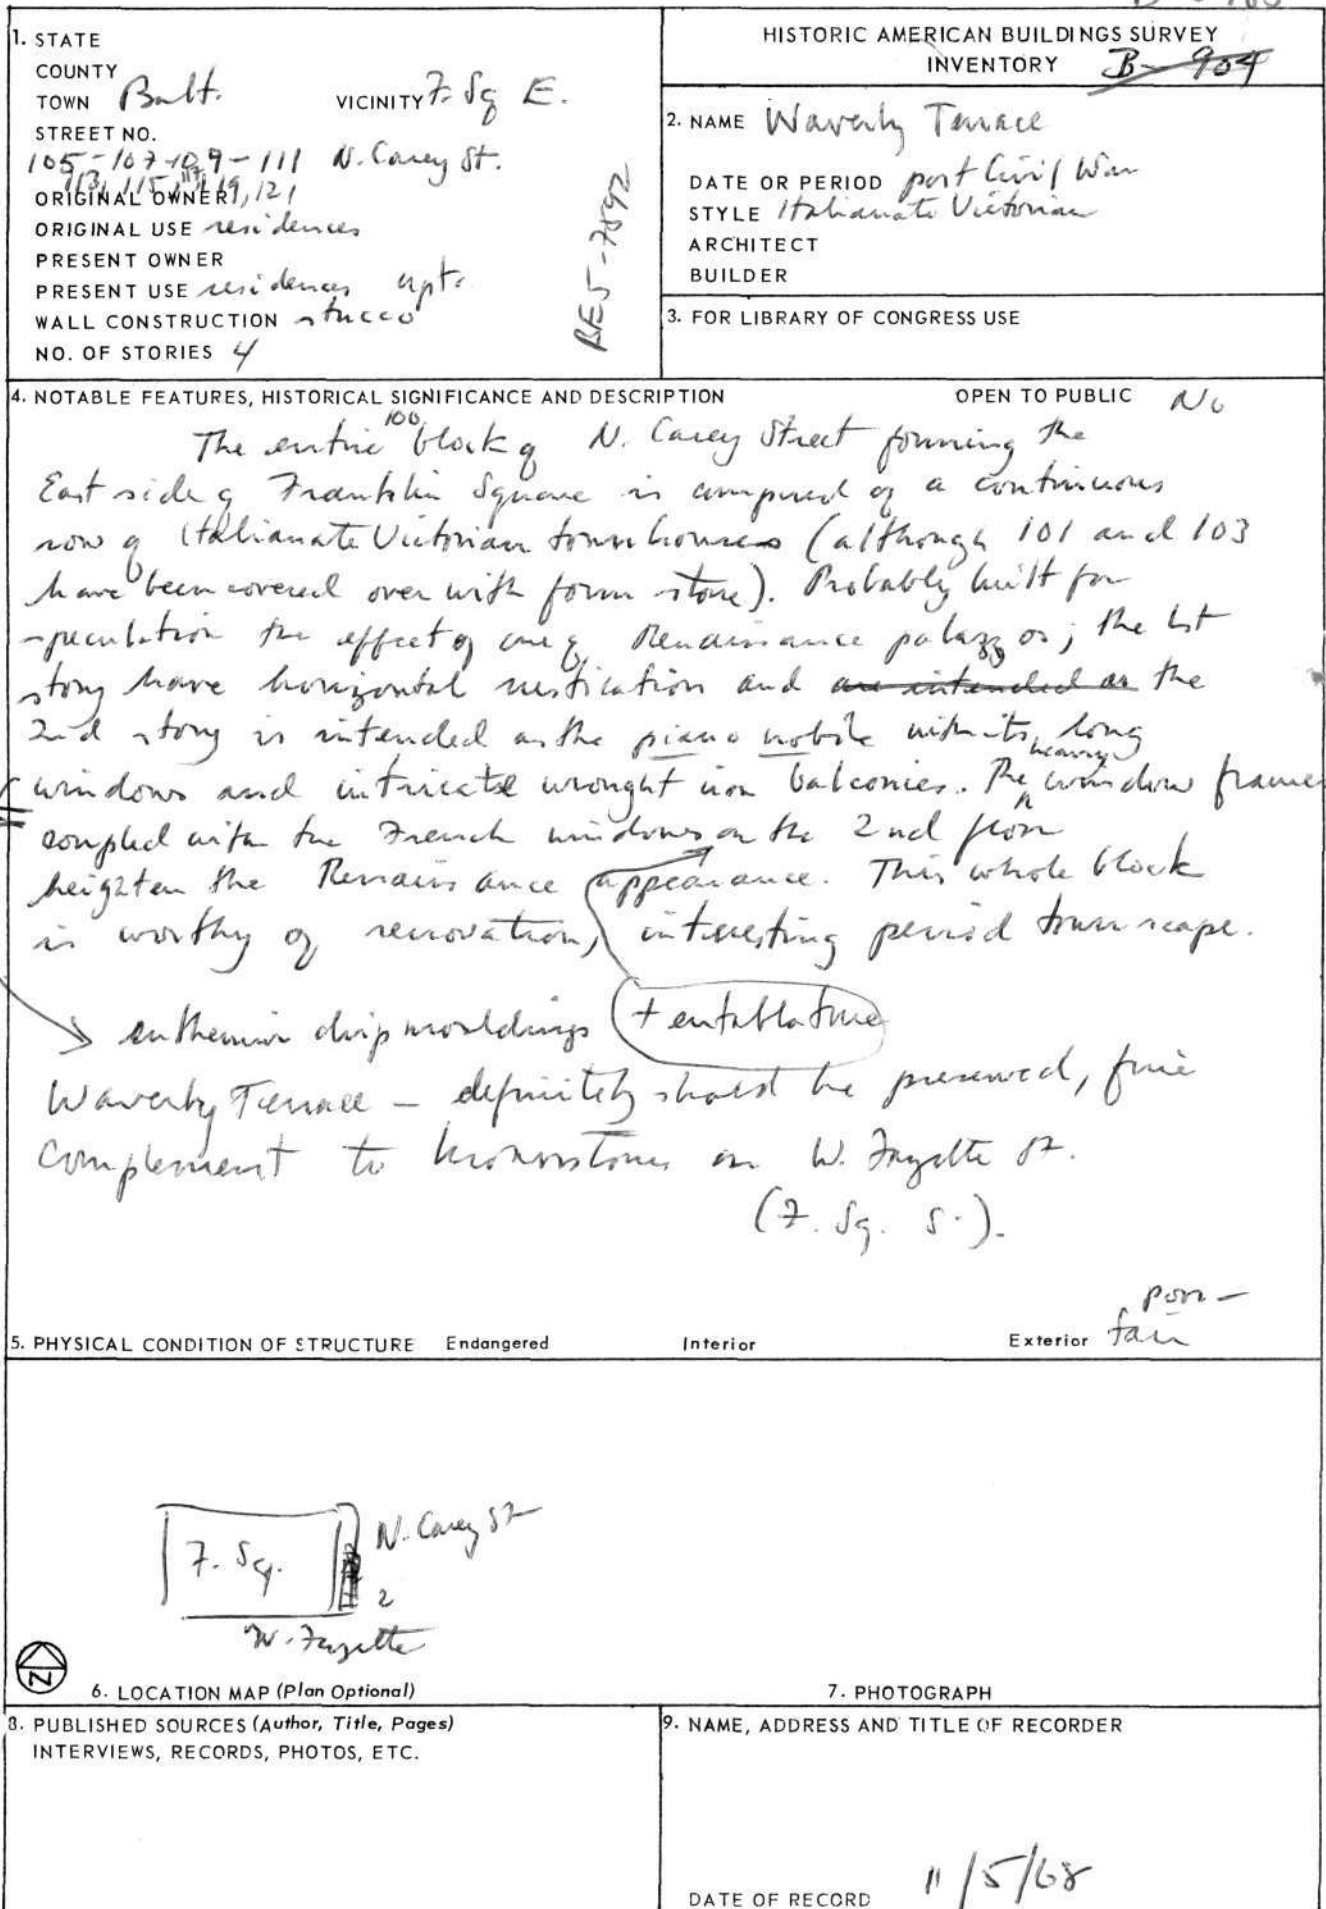 1. STATE
COUNTY
TOWN Balt. VICINITY F. Sq E.
STREET NO.
105-107-109-111 N. Carey St.
113, 115, 117, 119, 121
ORIGINAL OWNER
ORIGINAL USE residences
PRESENT OWNER
PRESENT USE residences apts
WALL CONSTRUCTION stucco
NO. OF STORIES 4
HISTORIC AMERICAN BUILDINGS SURVEY
INVENTORY B-904
2. NAME Waverly Terrace
DATE OR PERIOD post Civil War
STYLE Italianate Victorian
ARCHITECT
BUILDER
3. FOR LIBRARY OF CONGRESS USE
4. NOTABLE FEATURES, HISTORICAL SIGNIFICANCE AND DESCRIPTION OPEN TO PUBLIC No
The entire 100 block of N. Carey Street forming the
East side of Franklin Square is composed of a continuous
row of Italianate Victorian townhouses (although 101 and 103
have been covered over with form stone). Probably built for
speculation the effect of one of Renaissance palazzos; the 1st
story have horizontal rustication and are intended as the
2nd story is intended as the piano nobile with its long
windows and intricate wrought iron balconies. The heavy window frames
coupled with the French windows on the 2nd floor
heighten the Renaissance appearance. This whole block
is worthy of renovation, interesting period townscape.
drip mouldings + entablature
Waverly Terrace - definitely should be preserved, fine
complement to brownstones on W. Fayette St.
(F. Sq. S.).
5. PHYSICAL CONDITION OF STRUCTURE Endangered Interior Exterior poor - fair
F. Sq.
N. Carey St
2
W. Fayette
N
6. LOCATION MAP (Plan Optional)
7. PHOTOGRAPH
8. PUBLISHED SOURCES (Author, Title, Pages)
INTERVIEWS, RECORDS, PHOTOS, ETC.
9. NAME, ADDRESS AND TITLE OF RECORDER
DATE OF RECORD 11/5/68